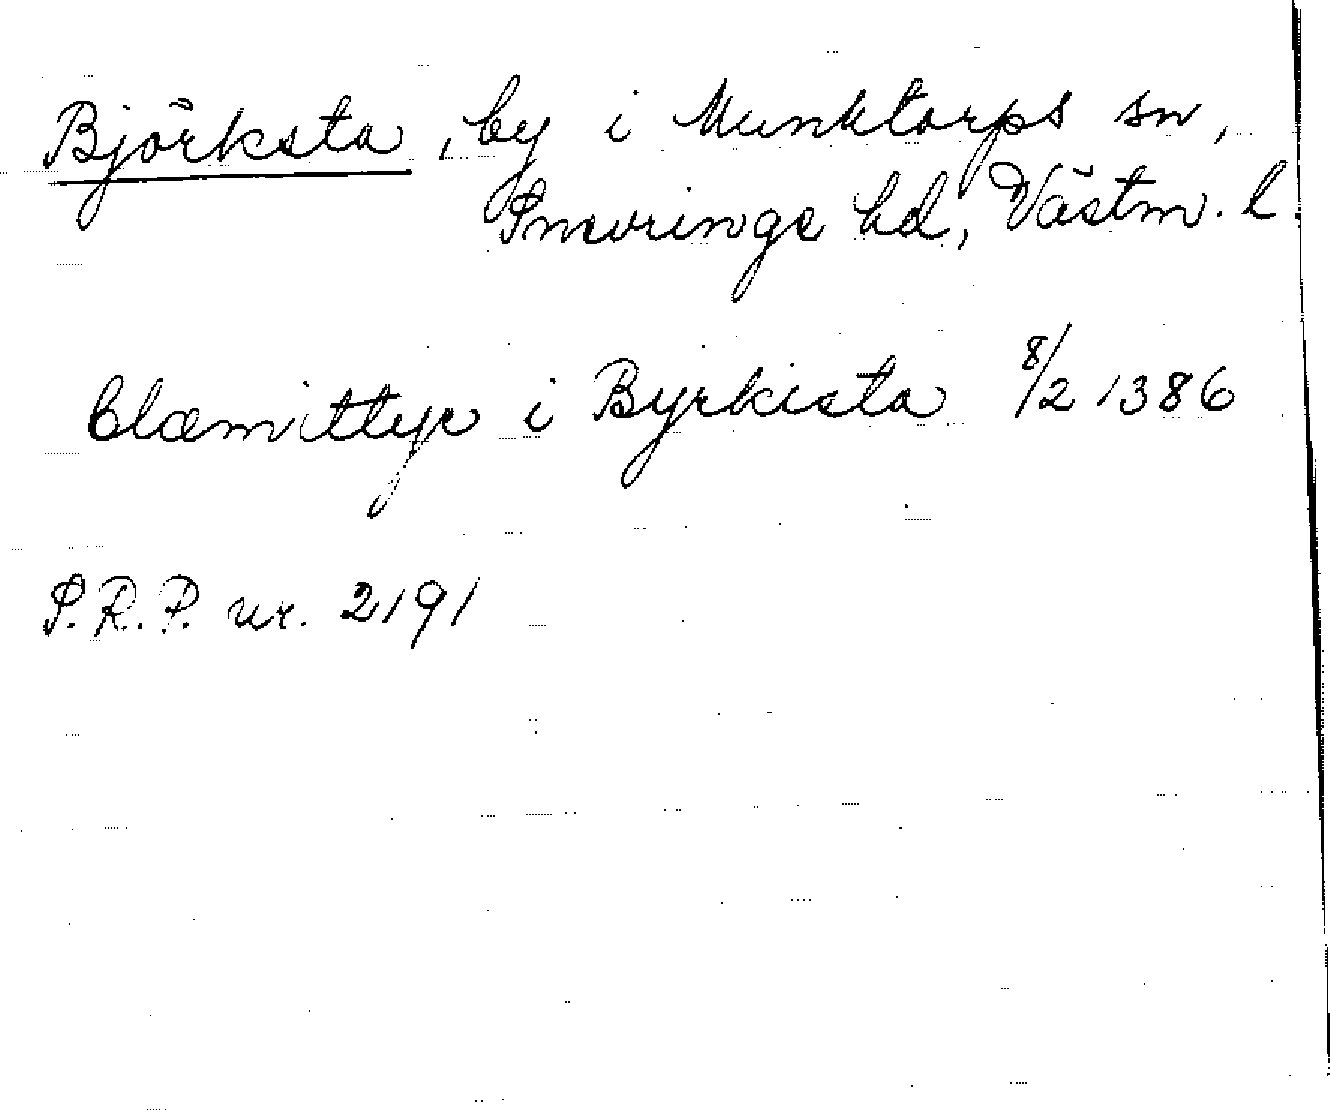 Björksta, by i Munktorps sn,
Snevringe hd, Västm. l.
Clæmittyr i Byrkista 8/2 1386
S.R.P. nr. 2191